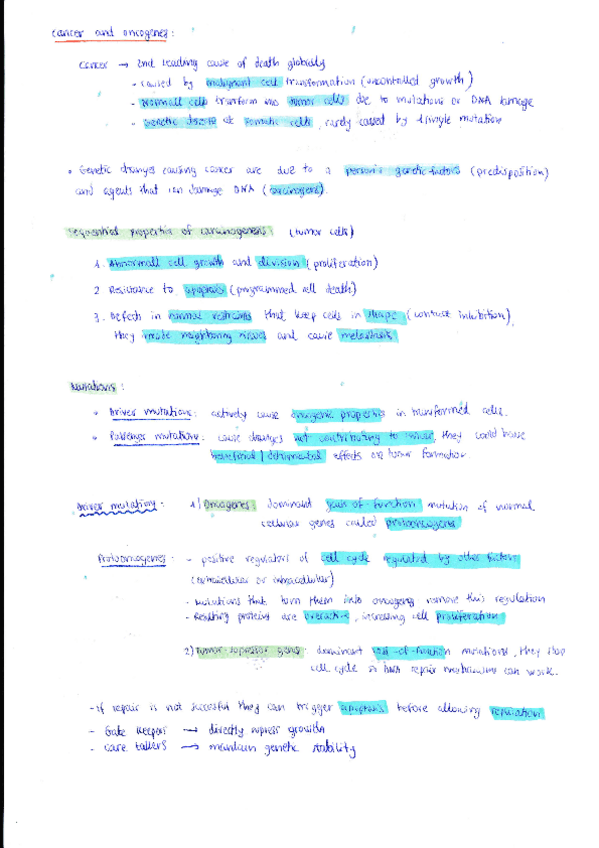 Cancer and oncogenes:
Cancer → 2nd leading cause of death globally
- caused by malignant cell transformation (uncontrolled growth)
- Normall cells transform into tumor cells due to mutations or DNA damage
- Genetic disease of somatic cells, rarely caused by 1 single mutation
• Genetic changes causing cancer are due to a person's genetic factors (predisposition)
and agents that can damage DNA (carcinogens).
Sequential properties of carcinogenesis: (tumor cells)
1. Abnormall cell growth and division (proliferation)
2. Resistance to apoptosis (programmed cell death)
3. Defects in normal restraints that keep cells in shape (contact inhibition),
they invade neighboring tissues and cause metastasis
Mutations:
• Driver mutations: actively cause oncogenic properties in transformed cells.
• Passenger mutations: cause changes not contributing to tumour, they could have
beneficial / detrimental effects on tumor formation
Driver mutation: 1) Oncogenes: dominant gain-of-function mutation of normal
cellular genes called protooncogenes
Protooncogenes: - positive regulators of cell cycle regulated by other factors
(extracellular or intracellular)
- Mutations that turn them into oncogenes remove this regulation
- Resulting proteins are overactive, increasing cell proliferation
2) Tumor supressor genes: dominant -of-function mutations, they stop
cell cycle so that repair mechanisms can work.
- if repair is not sucessful they can trigger apoptosis before allowing replication
- Gate keepers → directly supress growth
- Care takers → maintain genetic stability